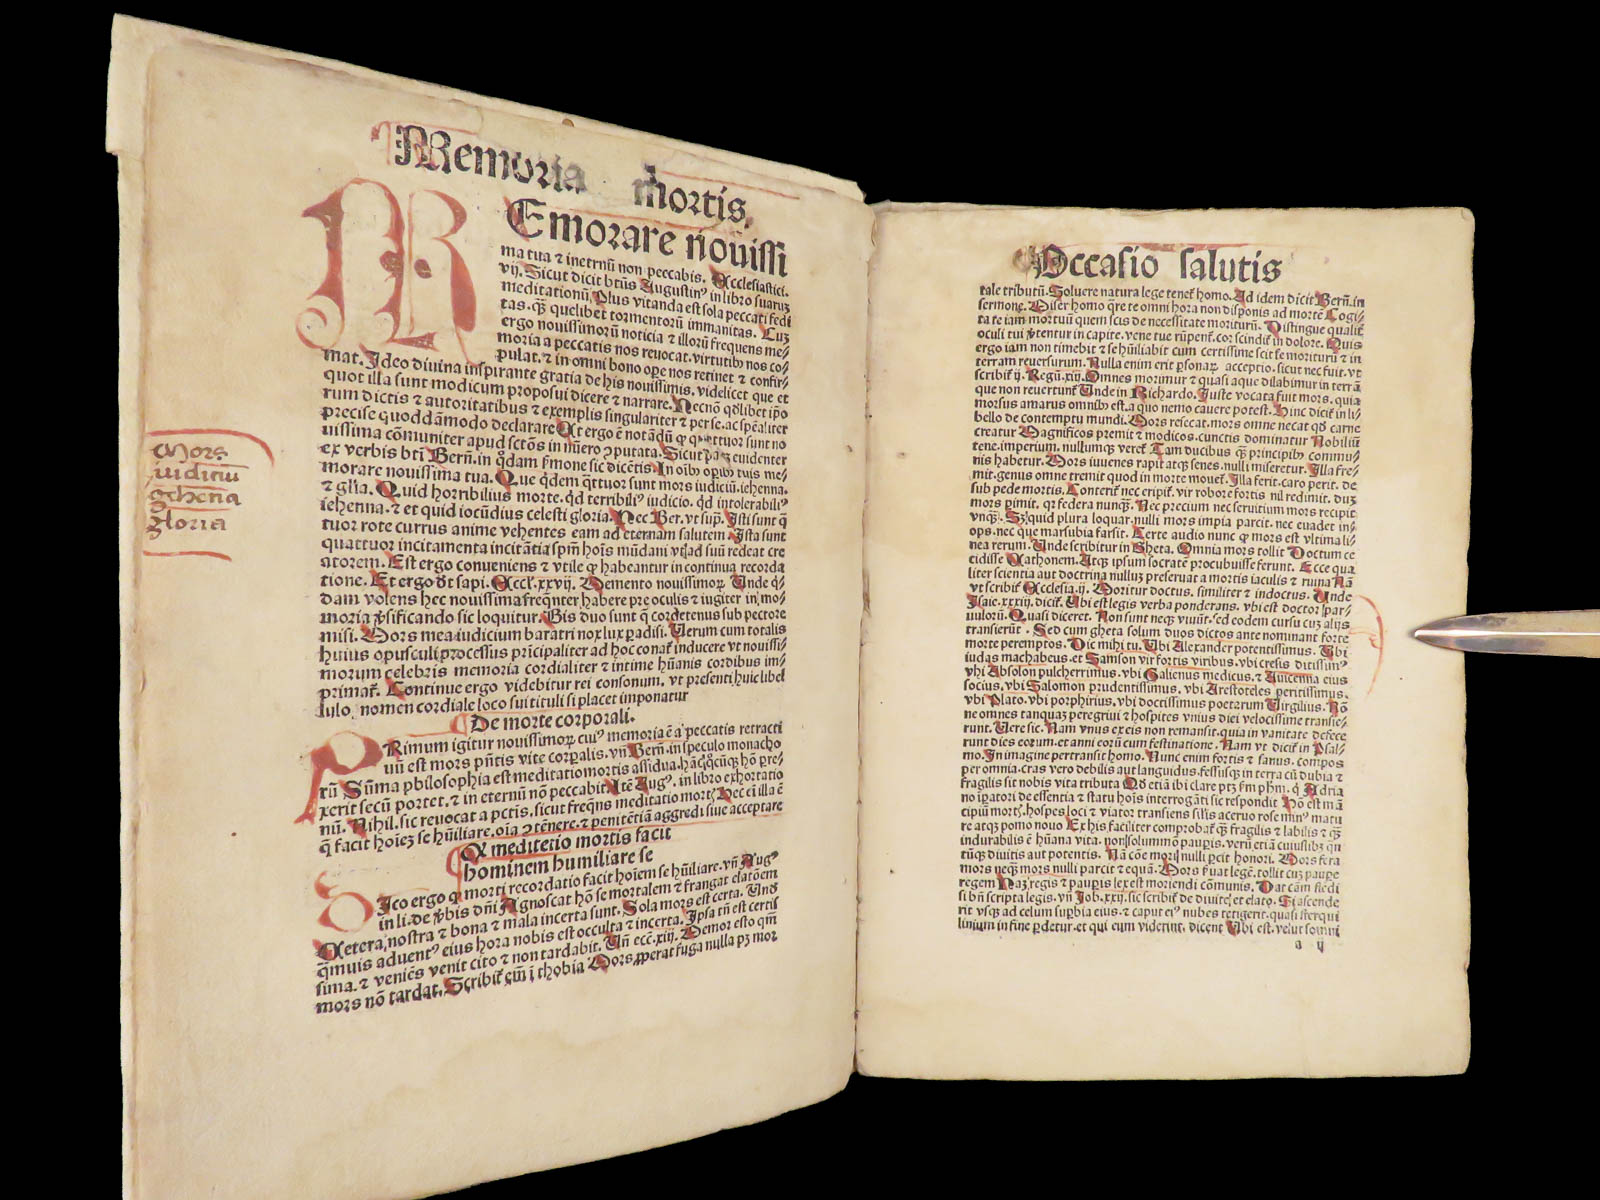 Memoria mortis.
MEmorare nouissi
ma tua ⁊ inetrnū non peccabis. Ecclesiastici.
vij. Sicut dicit btūs Augustinꝰ in libro suaruꝫ
meditationū. Plus vitanda est sola peccati fedi
tas. qƺ̄ quelibet tormentorū immanitas. Cuꝫ
ergo nouissimorū noticia ⁊ illorū frequens me⸗
moria a peccatis nos reuocat. virtutibꝰ nos co⸗
pulat. ⁊ in omni bono oꝑe nos retinet ⁊ confir⸗
mat. Ideo diuina inspirante gratia de his nouissimis. videlicet que et
quot illa sunt modicum proposui dicere ⁊ narrare. Necnō qd̄libet ip̄o
rum dictis ⁊ autoritatibus ⁊ exemplis singulariter ⁊ per se. ac sp̄ealiter
precise quoddāmodo declarare. At ergo ē notādū ꝙ quattuor sunt no
uissima cōmuniter apud sctōs in nūero ꝯputata. Sicut euidenter
ex verbis btī Bern̄. in qdam ẜmone sic dicētis. In oībꝰ oꝑibꝰ tuis me⸗
morare nouissima tua. Que qdem qttuor sunt mors iudiciū. iehenna.
⁊ glīa. Quid horribilius morte. qd terribiliꝰ iudicio. qd intolerabiliꝰ
iehenna. ⁊ et quid iocūdius celesti gloria. Nec Ber. vt sup. Isti sunt q̄
tuor rote currus anime vehentes eam ad eternam salutem. Ista sunt
quattuor incitamenta incitātia spm̄ hoīs mūdani vt ad suū redeat cre
atorem. Est ergo conueniens ⁊ vtile ꝙ habeantur in continua recorda
tione. Et ergo dt̄ sapi. Eccl. xxvij. Memento nouissimoꝝ Unde q⸗
dam volens hec nouissima freqn̄ter habere pre oculis ⁊ iugiter in mo⸗
moria ꝟsificando sic loquitur. Bis duo sunt q̄ cordetenus sub pectore
misi. Mors mea iudicium baratri nox lux ꝑadisi. Uerum cum totalis
huius opusculi processus prīcipaliter ad hoc conat̄ inducere vt nouissi⸗
morum celebris memoria cordialiter ⁊ intime hūanis cordibus im⸗
primat̄. Continue ergo videbitur rei consonum. vt presenti huic libel
lulo nomen cordiale loco sui tituli si placet imponatur
De morte corporali.
PRimum igitur nouissimoꝝ cuiꝰ memoria ē a peccatis retracti
uū est mors pn̄tis vite corꝑalis. vn̄ Bern̄. in speculo monacho
rū Sūma philosophia est meditatio mortis assidua. hāc qōcūqƺ hō pre⸗
xerit secū portet. ⁊ in eternū nō peccabit. Itē Augꝰ. in libro exhortatio
nū. Nihil sic reuocat a pctīs. sicut freqn̄s meditatio mort̄. Nec em̄ illa ē
q̄ facit hoīeꝫ se hūiliare. oīa ꝯtēnere. ⁊ penitētiā aggredi siue acceptare
Q meditatio mortis facit
hominem humiliare se
DIco ergo ꝙ morti recordatio facit hoīem se hūiliare. vn̄ Augꝰ
in li. de ꝟbis dn̄i Agnoscat hō se mortalem ⁊ frangat elatōem
Cetera nostra ⁊ bona ⁊ mala incerta sunt. Sola mors est certa. Und
qƺ̄uis aduentꝰ eius hora nobis est occulta ⁊ incerta. Ipsa tn̄ est certis
sima. ⁊ veniēs venit cito ⁊ non tardabit. Un̄ ecc̄. xiij. Memor esto qm̄
mors nō tardat. Scribit̄ em̄ ī thobia Mors ꝓperat fuga nulla pꝫ mor
Mors
iudiciū
gehena
gloria
Occasio salutis
tale tributū. Soluere natura lege tenet̄ homo. Ad idem dicit Bern̄. in
sermone. Miser homo q̄re te omni hora non disponis ad mortē Cogi⸗
ta te iam mortuū quem scis de necessitate moriturū. Distingue qualit̄
oculi tui ꝟtentur in capite. vene tue rūpent̄. cor scindit̄ in dolore. Quis
ergo iam non timebit ⁊ se hūiliabit cum certissime scit se moriturū ⁊ in
terram reuersurum. Nulla enim erit ꝑsonaꝝ acceptio. sicut nec fuit. vt
scribit̄ ij. Regū. xiij. Omnes morimur ⁊ quasi aque dilabimur in terrā
que non reuertunt̄ Unde in Richardo. Juste vocata fuit mors. quia
morsus amarus omnibꝰ est. a quo nemo cauere potest. Hinc dicit̄ in li⸗
bello de contemptu mundi. Mors resecat. mors omne necat qd̄ carne
creatur Magnificos premit ⁊ modicos. cunctis dominatur Nobiliū
tene. imperium. nullumqƺ veret̄ Tam ducibus qƺ̄ principibꝰ commu⸗
nis habetur. Mors iuuenes rapit atqƺ senes. nulli miseretur. Illa fre⸗
mit. genus omne tremit quod in morte mouet̄. Illa ferit. caro perit. de
sub pede mortis. Conterit̄ nec eripit̄. vir robore fortis nil redimit. duꝫ
mors ꝑimit. qr federa nunqƺ. Nec precium nec seruitium mors recipit
vnqƺ. Sꝫ quid plura loquar. nulli mors impia parcit. nec euadet in⸗
ops. nec que marsubia farsit. Certe audio nunc ꝙ mors est vltima li⸗
nea rerum. Unde scribitur in Gheta. Omnia mors tollit Doctum ce
cidisse Cathonem. Atqƺ ipsum socratē procubuisse ferunt. Ecce qua
liter scientia aut doctrina nulluꝫ preseruat a mortis iaculis ⁊ ruina Nā
vt scribit̄ Ecclesia. ij. Moritur doctus. similiter ⁊ indoctus. Unde
Isaie. xxxiij. dicit̄. Ubi est legis verba ponderans. vbi est doctor par⸗
uulorū. Quasi diceret. Non sunt neqƺ viuūt. sed eodem cursu cuꝫ alijs
transierūt. Sed cum gheta solum duos dictos ante nominant forte
morte peremptos. Dic mihi tu. Ubi Alexander potentissimus. Ubi
iudas machabeus. et Samson vir fortis viribus. vbi cresis ditissimꝰ
vbi Absolon pulcherrimus. vbi Galienus medicus. ⁊ Auicenna eius
socius. vbi Salomon prudentissimus. vbi Arestoteles peritissimus.
vbi Plato. vbi porphirius. vbi doctissimus poetarum Virgilius. Nō
ne omnes tanquaꝫ peregrini ⁊ hospites vnius diei velocissime transie⸗
runt. Uere sic. Nam vnus ex eis non remansit. quia in vanitate defece
runt dies eorum. et anni eorū cum festinatione. Nam vt dicit̄ in Psal⸗
mo. In imagine pertransit homo. Nunc enim fortis ⁊ sanus. compos
per omnia. cras vero debilis aut languidus. fessusqƺ in terra cū dubia ⁊
fragilis sit nobis vita tributa Qd̄ etiā ibi clare ptꝫ ẜm phm̄. q Adria
no īꝑatori de essentia ⁊ statu hoīs interroganti sic respondit. Hō est mā
cipiū mort̄. hospes loci ⁊ viator transiens sīlis aceruo rose mīrꝰ matu
re atqƺ pomo nouo Ex his faciliter comprobat̄ qƺ̄ fragilis ⁊ labilis ⁊ qƺ̄
indurabilis ē hūana vita. non solummō pauꝑis. verū etiā cuiuslibꝫ qn̄
tūqƺ diuitis aut potentis. Nā cōe mori nulli ꝑcit honori. Mors fera
mors nequā. mors nulli parcit ⁊ equā. Mors ẜuat legē. tollit cuꝫ pauꝑe
regem Naꝫ regis ⁊ pauꝑis lex est moriendi cōmunis. Dat cām flēdi
si bn̄ scripta legis. vn̄ Job. xx. sic scribit̄ de diuite et elato. Si ascende
rit vsqƺ ad celum suꝑbia eius. ⁊ caput eiꝰ nubes tetigerit. quasi sterqui
linium in fine ꝑdetur. et qui eum viderint. dicent Ubi est. velut somni
a ij